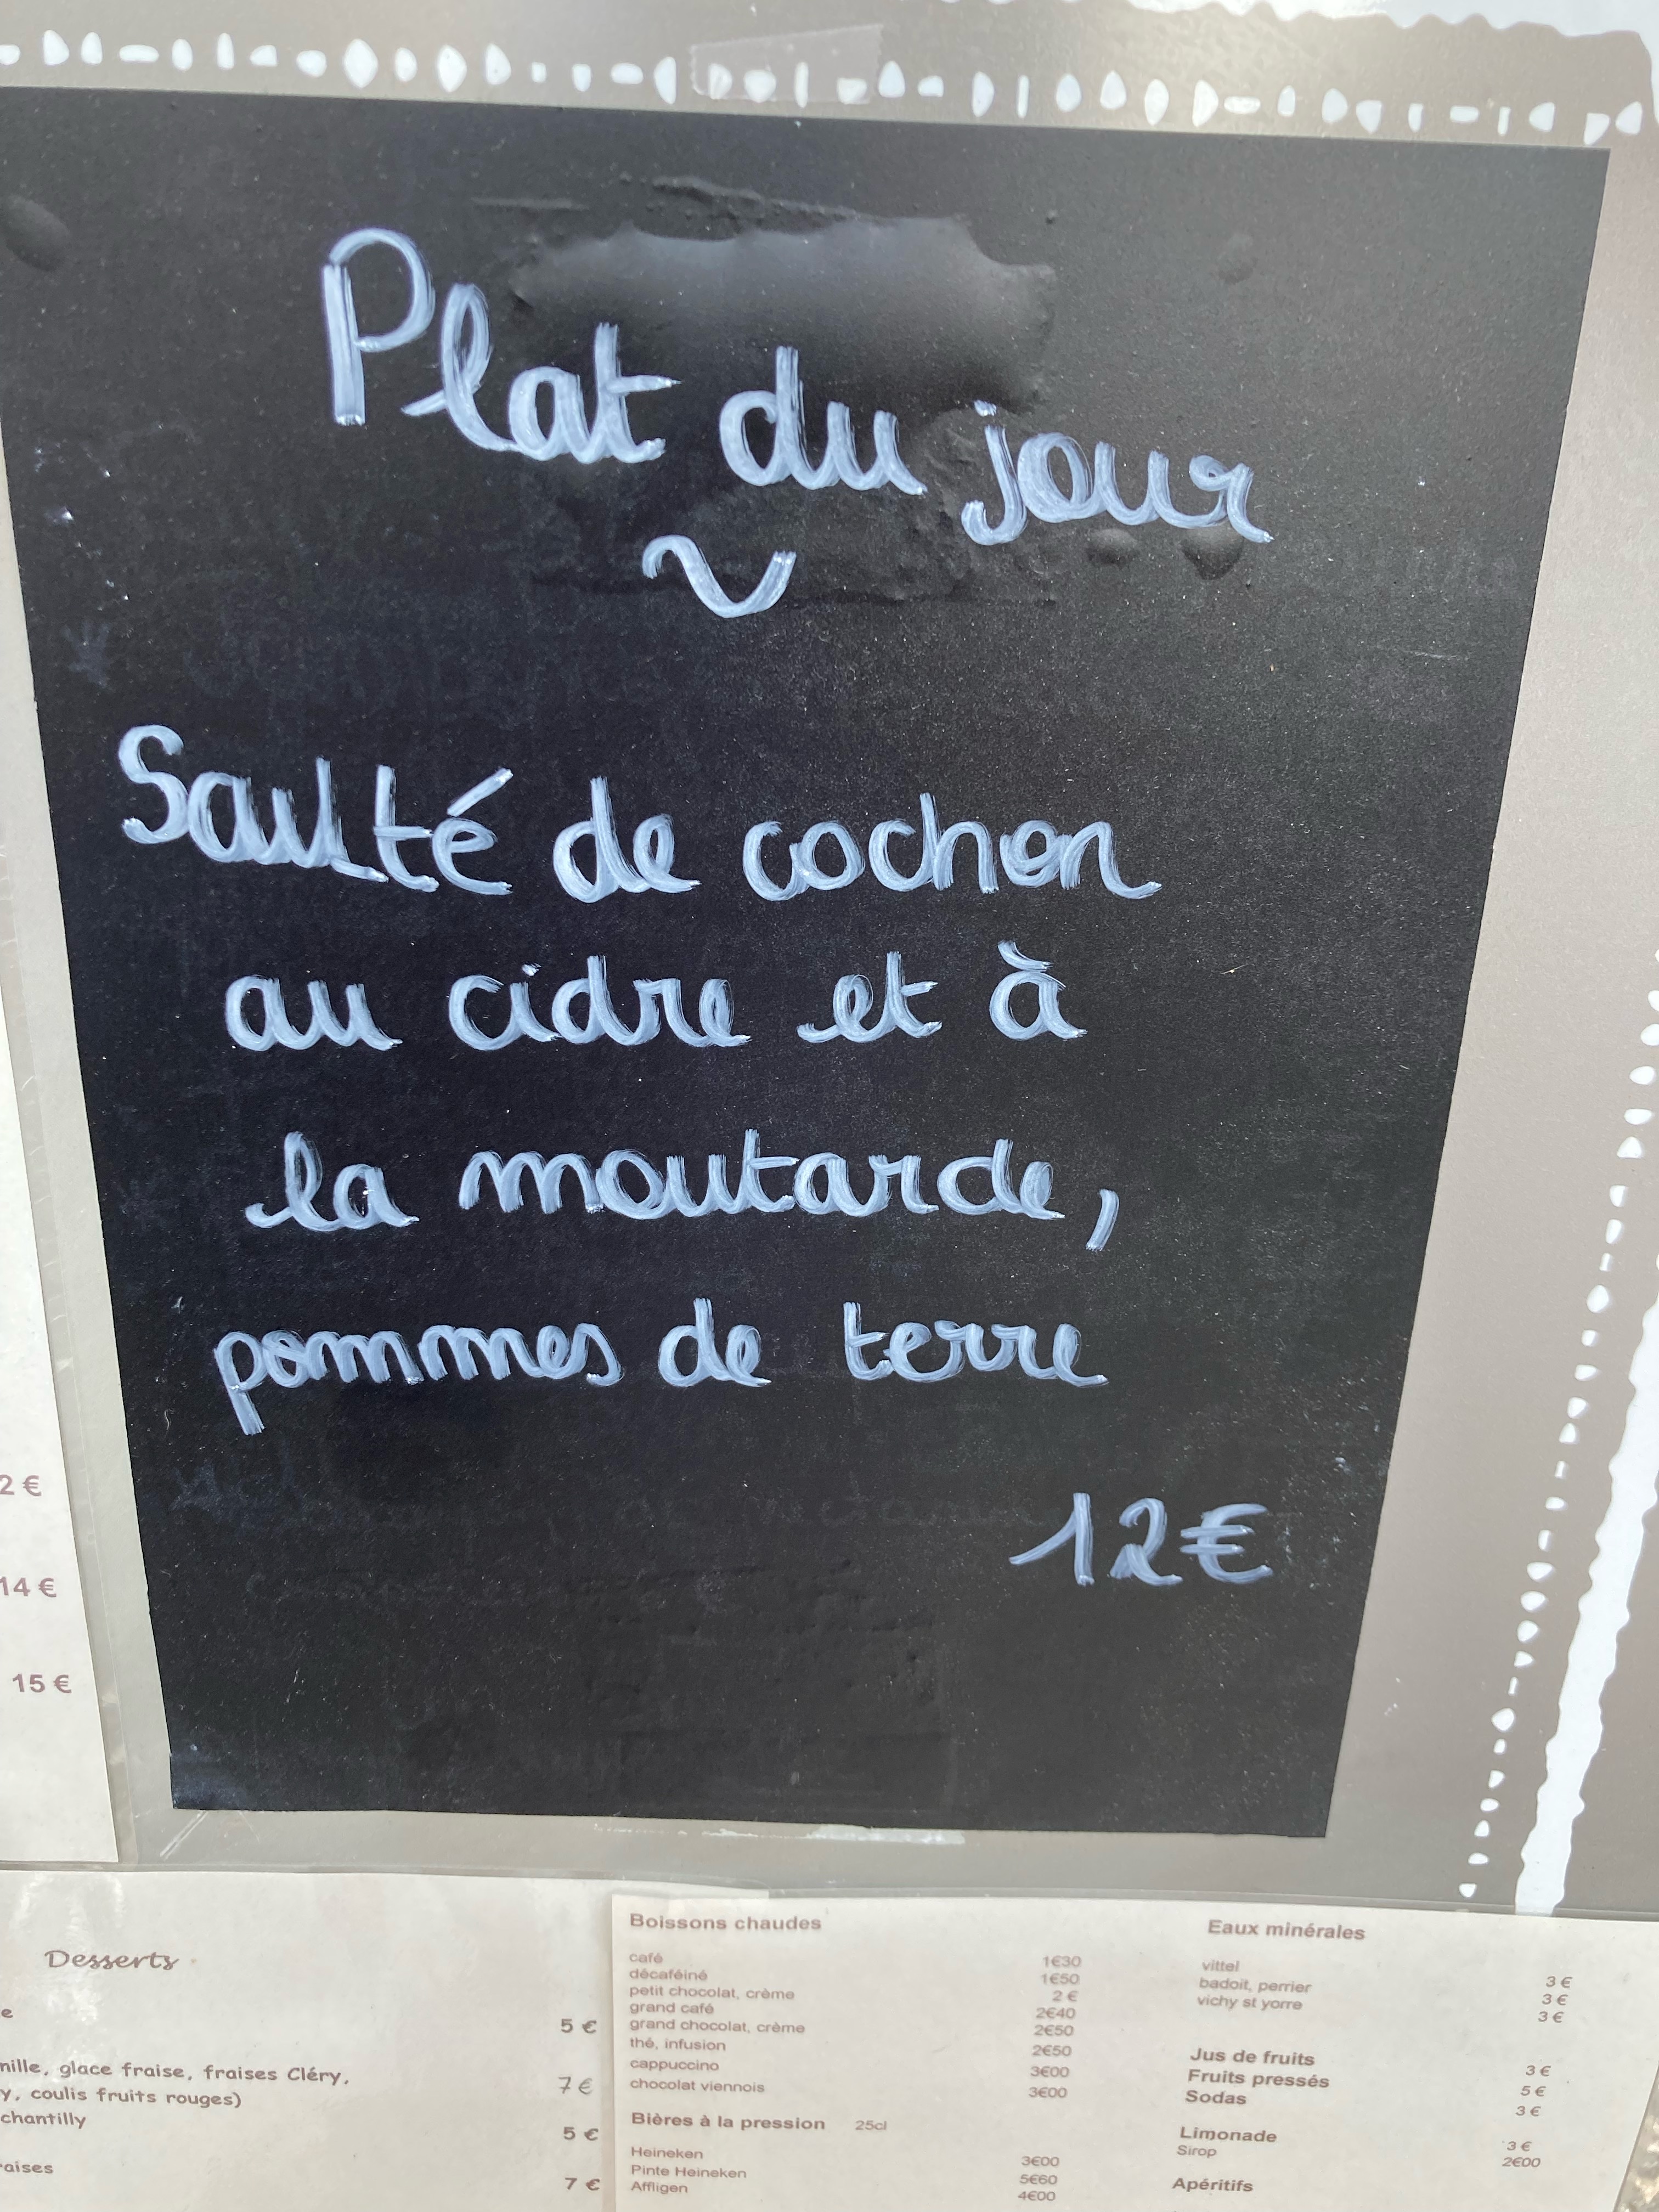 Plat du jour
Sauté de cochon
au cidre et à
la moutarde,
pommes de terre
12€
2 €
14 €
15 €
Desserts
5 €
glace fraise, fraises Cléry,
7 €
coulis fruits rouges)
chantilly
5 €
7 €
Boissons chaudes
café 1€30
décaféiné 1€50
petit chocolat, crème 2 €
grand café 2€40
grand chocolat, crème 2€50
thé, infusion 2€50
cappuccino 3€00
chocolat viennois 3€00
Bières à la pression 25cl
Heineken 3€00
Pinte Heineken 5€60
Affligen 4€00
Eaux minérales
vittel 3 €
badoit, perrier 3 €
vichy st yorre 3 €
Jus de fruits 3 €
Fruits pressés 5 €
Sodas 3 €
Limonade 3 €
Sirop 2€00
Apéritifs